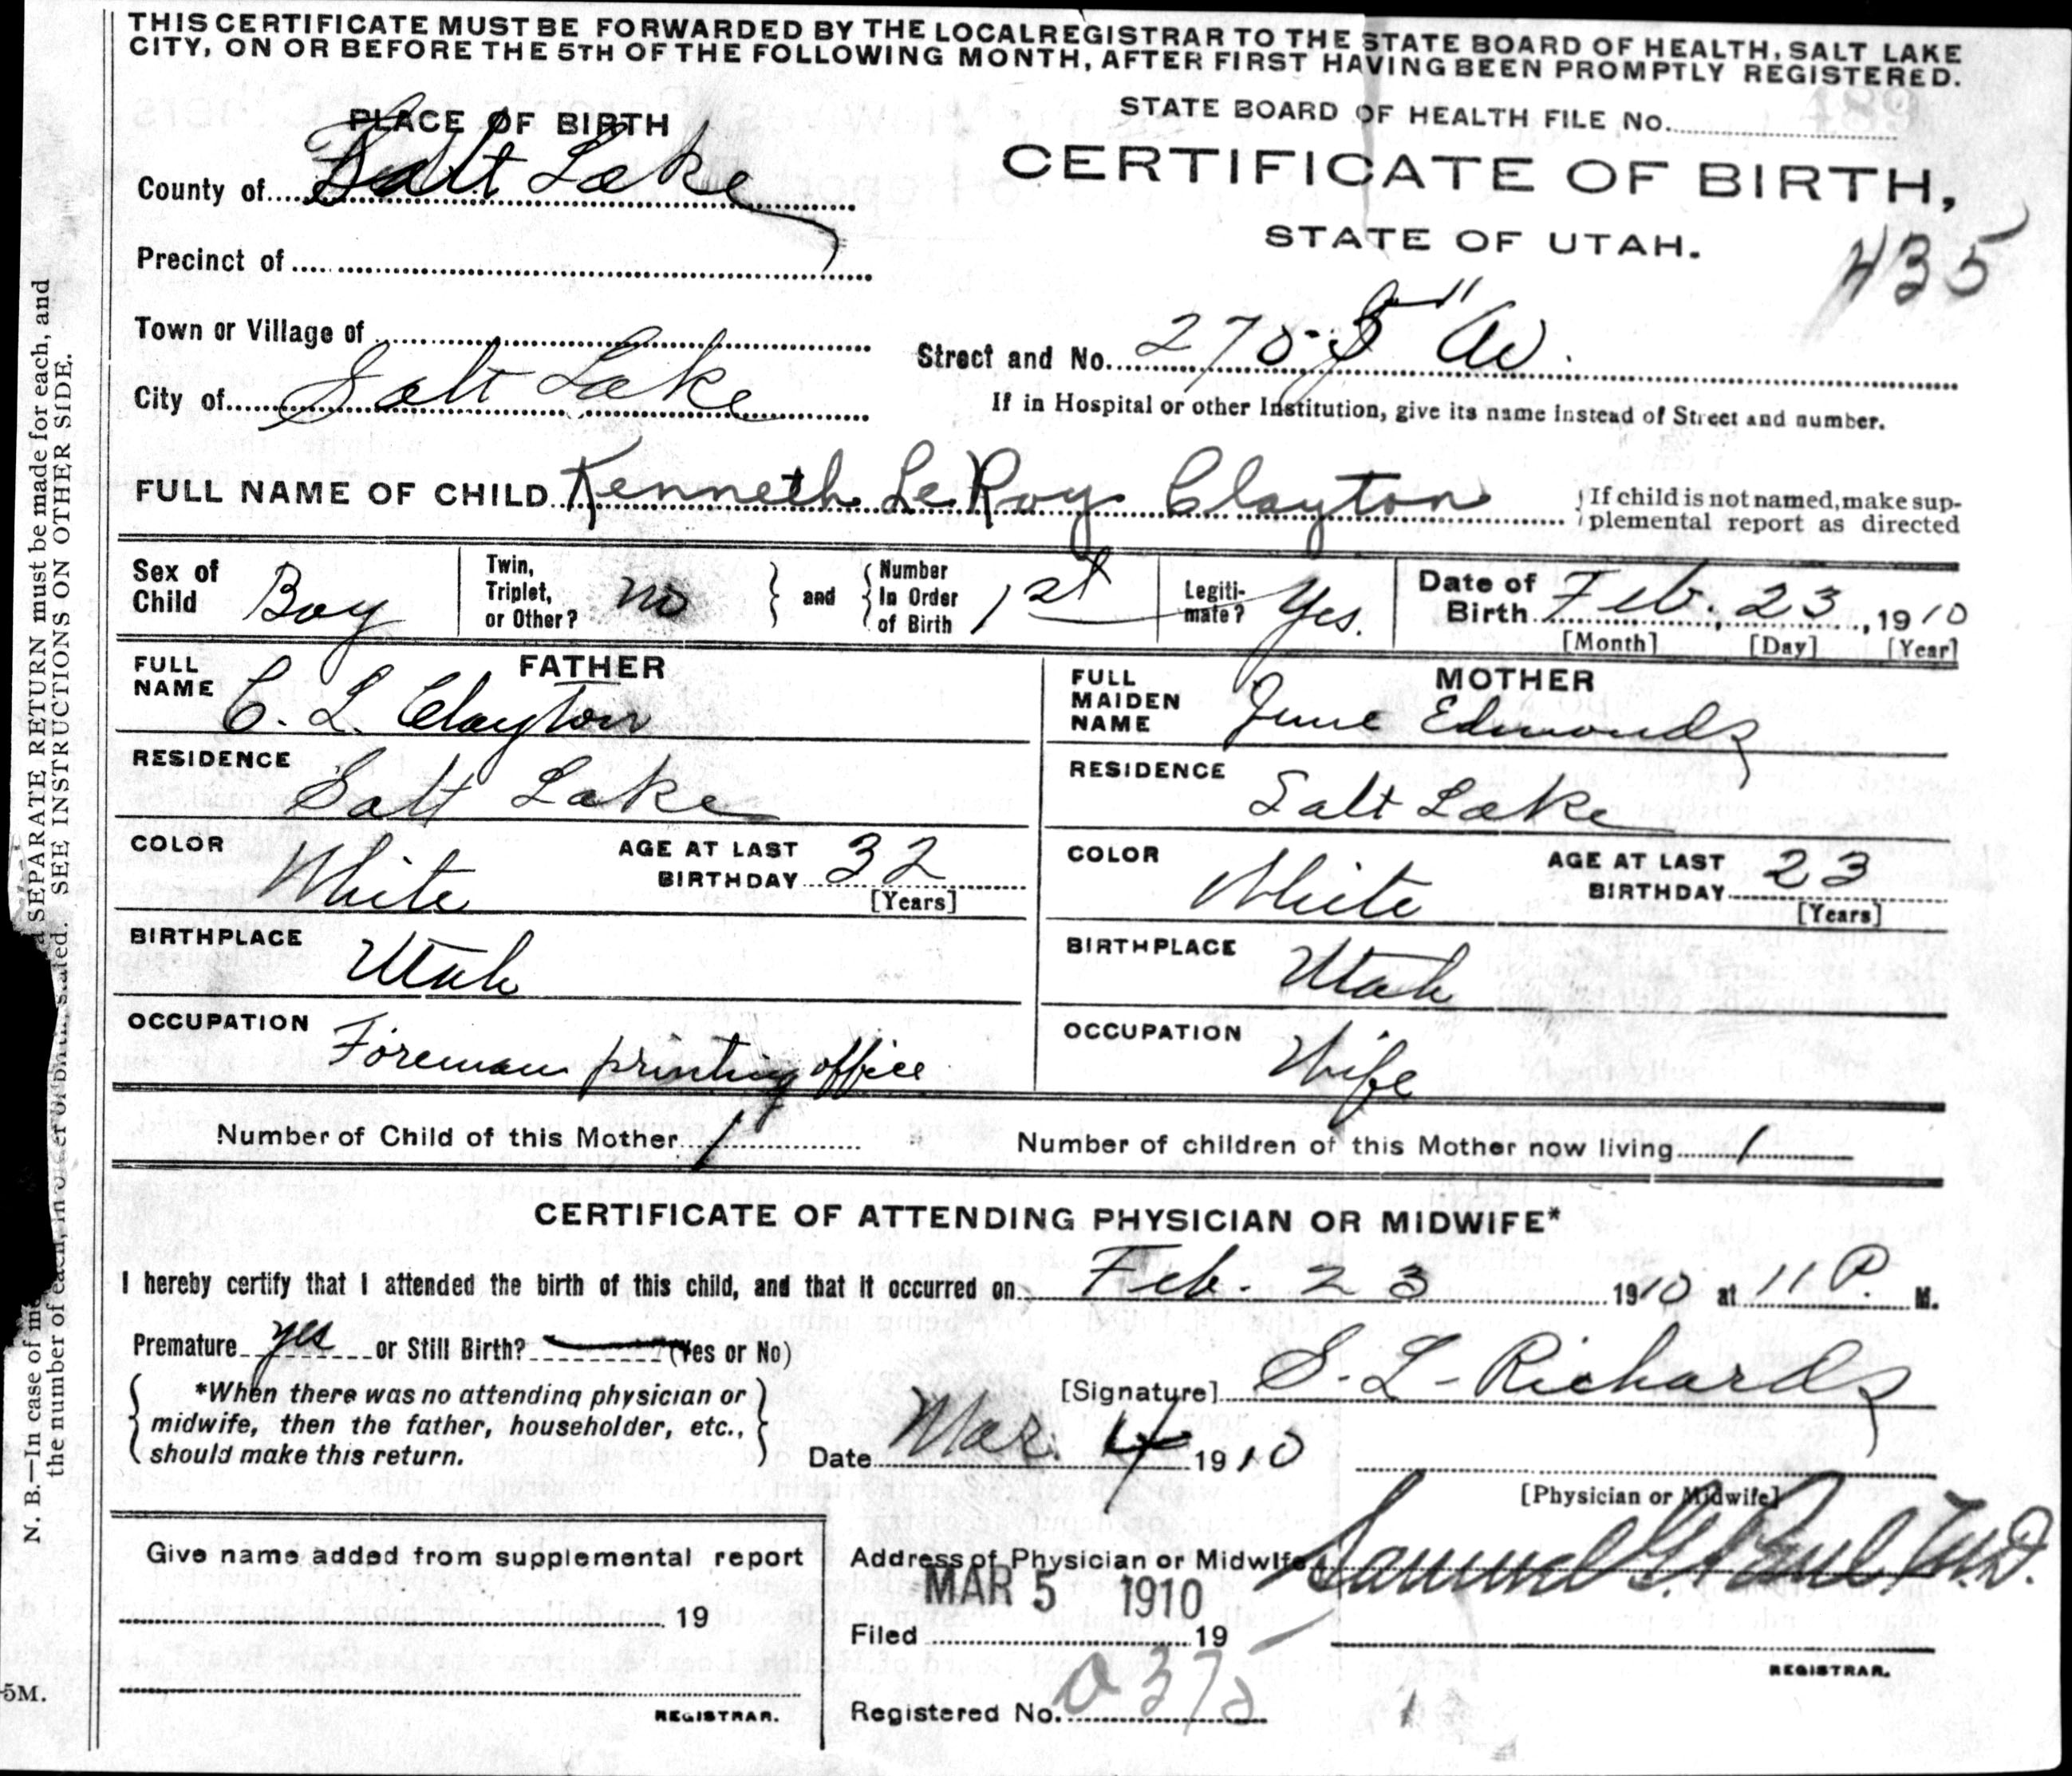 THIS CERTIFICATE MUST BE FORWARDED BY THE LOCALREGISTRAR TO THE STATE BOARD OF HEALTH, SALT LAKE
CITY, ON OR BEFORE THE 5TH OF THE FOLLOWING MONTH, AFTER FIRST HAVING BEEN PROMPTLY REGISTERED.
STATE BOARD OF HEALTH FILE No.
PLACE OF BIRTH
CERTIFICATE OF BIRTH,
County of Salt Lake
STATE OF UTAH.
435
Precinct of
Town or Village of
Street and No.
City of Salt Lake
If in Hospital or other Institution, give its name instead of Street and number.
FULL NAME OF CHILD Kenneth LeRoy Clayton
If child is not named, make sup-
plemental report as directed
Sex of Child Boy
Twin, Triplet, or Other? no
and Number In Order of Birth 1st
Legiti-mate? Yes.
Date of Birth Feb. 23, 1910
[Month] [Day] [Year]
FATHER
FULL NAME C. L. Clayton
RESIDENCE Salt Lake
COLOR White AGE AT LAST BIRTHDAY 32 [Years]
BIRTHPLACE Utah
OCCUPATION Foreman printing office
MOTHER
FULL MAIDEN NAME June Edmonds
RESIDENCE Salt Lake
COLOR White AGE AT LAST BIRTHDAY 23 [Years]
BIRTHPLACE Utah
OCCUPATION Wife
Number of Child of this Mother 1
Number of children of this Mother now living 1
CERTIFICATE OF ATTENDING PHYSICIAN OR MIDWIFE*
I hereby certify that I attended the birth of this child, and that it occurred on Feb. 23 1910 at 11 P. M.
Premature yes or Still Birth? (Yes or No)
*When there was no attending physician or
midwife, then the father, householder, etc.,
should make this return.
[Signature] S. L. Richards
Date Mar. 4 1910
[Physician or Midwife]
Give name added from supplemental report
19
REGISTRAR.
Address of Physician or Midwife
MAR 5 1910
Samuel G. Paul, M.D.
Filed 19
REGISTRAR.
Registered No. 0375
N. B.—In case of
a SEPARATE RETURN must be made for each, and
the number of each, in order of birth, stated. SEE INSTRUCTIONS ON OTHER SIDE.
5M.